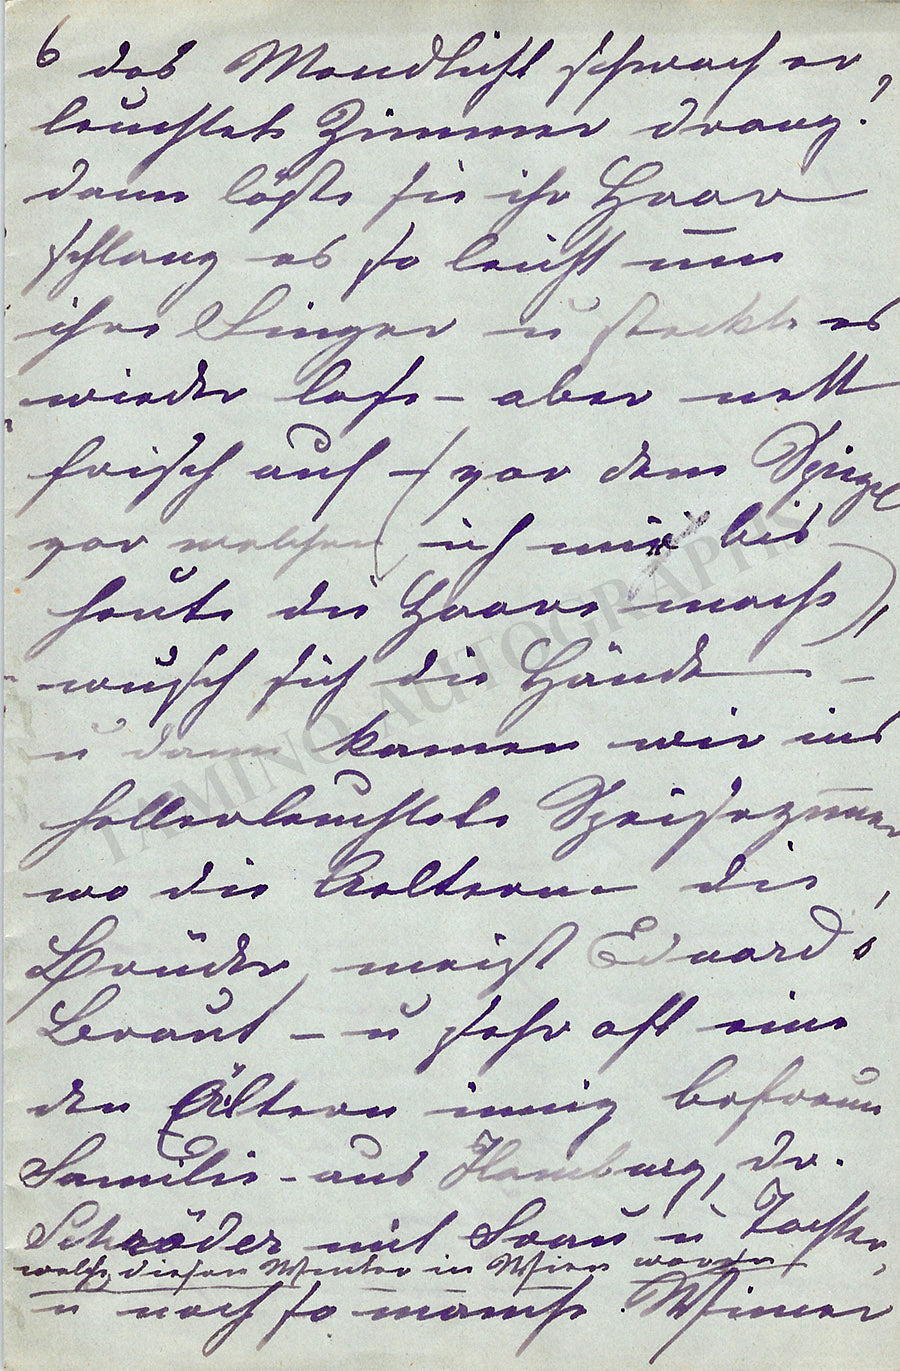 6 das Mondlicht schwach er
leuchtete Zimmer drang!
dann löste sie ihr Haar
schlang es so leicht um
ihre Finger u steckte es
wieder lose – aber nett
frisch auf – (vor dem Spiegel
vor welchen ich mir bis
heute die Haare mache),
wusch sich die Hände –
u dann kamen wir ins
hellerleuchtete Speisezimmer
wo die Aeltern die
Brüder, meist Eduards
Braut – u sehr oft eine
den Ältern innig befreun
Familie – aus Hamburg, Dr.
Schröder mit Frau u Tochter,
welche diesen Winter in Wien waren
u noch so manche Wiener
TAMINO AUTOGRAPHS